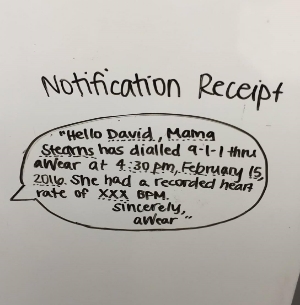 Notification Receipt
"Hello David, Mama
Stearns has dialled 9-1-1 thru
aWear at 4:30 pm, February 15,
2016. She had a recorded heart
rate of XXX BPM.
Sincerely,
aWear"